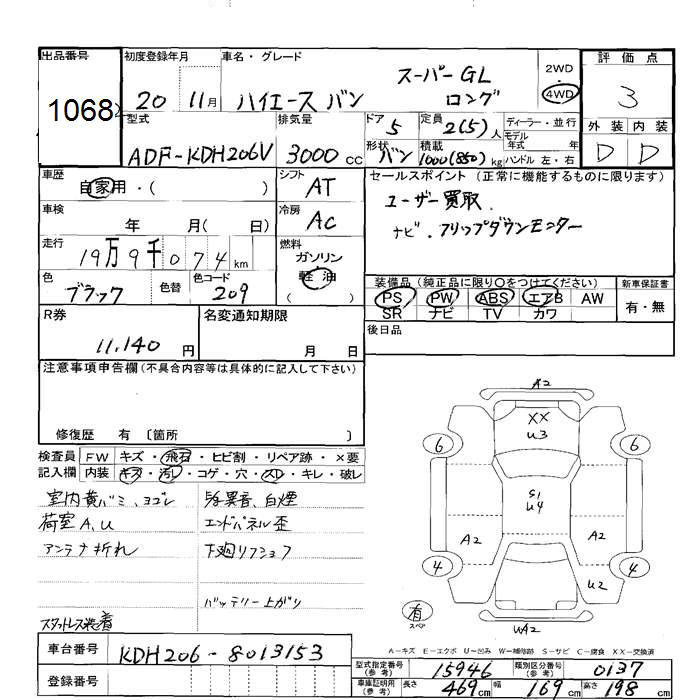 出品番号
1068
初度登録年月
20 11月
車名・グレード
スーパーGL
ハイエース バン ロング
2WD
・
4WD
評価点
3
外装 内装
D D
型式
ADF-KDH206V
排気量
3000cc
ドア 5
形状 バン
定員 2(5)人
積載 1000(850)kg
ディーラー・並行
モデル
年式 年
ハンドル 左・右
車歴
自家用・( )
シフト
AT
車検
年 月( 日)
冷房
AC
走行
19万9千074km
燃料
ガソリン
軽油
( )
色
ブラック
色替
色コード
209
セールスポイント (正常に機能するものに限ります)
ユーザー買取.
ナビ.フリップダウンモニター
装備品 (純正品に限り○をつけてください)
PS PW ABS エアB AW
SR ナビ TV カワ
新車保証書
有・無
R券
11,140円
名変通知期限
月 日
後日品
注意事項申告欄(不具合内容等は具体的に記入して下さい)
修復歴 有 〔箇所 〕
検査員 FW キズ・飛石・ヒビ割・リペア跡・×要
記入欄 内装 キズ・汚レ・コゲ・穴・スレ・キレ・破レ
室内黄バミ、ヨゴレ
荷室A,U
アンテナ折れ
スタットレス装着
異音、白煙
エンドパネル歪
下廻り
バッテリー上がり
A2
XX
U3
6
6
S1
U4
A2
A2
4
4
U2
有
スペア
UA2
A-キズ E-エクボ U-凹み W-補修跡 S-サビ C-腐食 XX-交換済
車台番号
KDH206-8013153
登録番号
型式指定番号
(参考)
15946
類別区分番号
(参考)
0137
車庫証明用
(参考)
長さ 469cm 幅 169cm 高さ 198cm